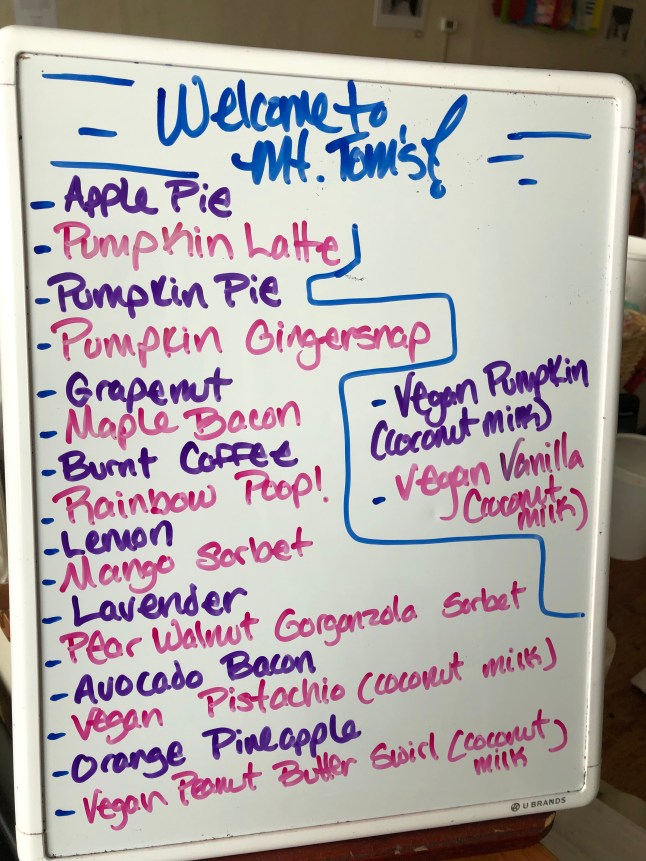 Welcome to
Mt. Tom's!
- Apple Pie
- Pumpkin Latte
- Pumpkin Pie
- Pumpkin Gingersnap
- Grapenut
- Maple Bacon
- Burnt Coffee
- Rainbow Poop!
- Lemon
- Mango Sorbet
- Lavender
- Pear Walnut Gorgonzola Sorbet
- Avocado Bacon
- Vegan Pistachio (coconut milk)
- Orange Pineapple
- Vegan Peanut Butter Swirl (coconut
milk)
- Vegan Pumpkin
(coconut milk)
- Vegan Vanilla
(coconut
milk)
U BRANDS